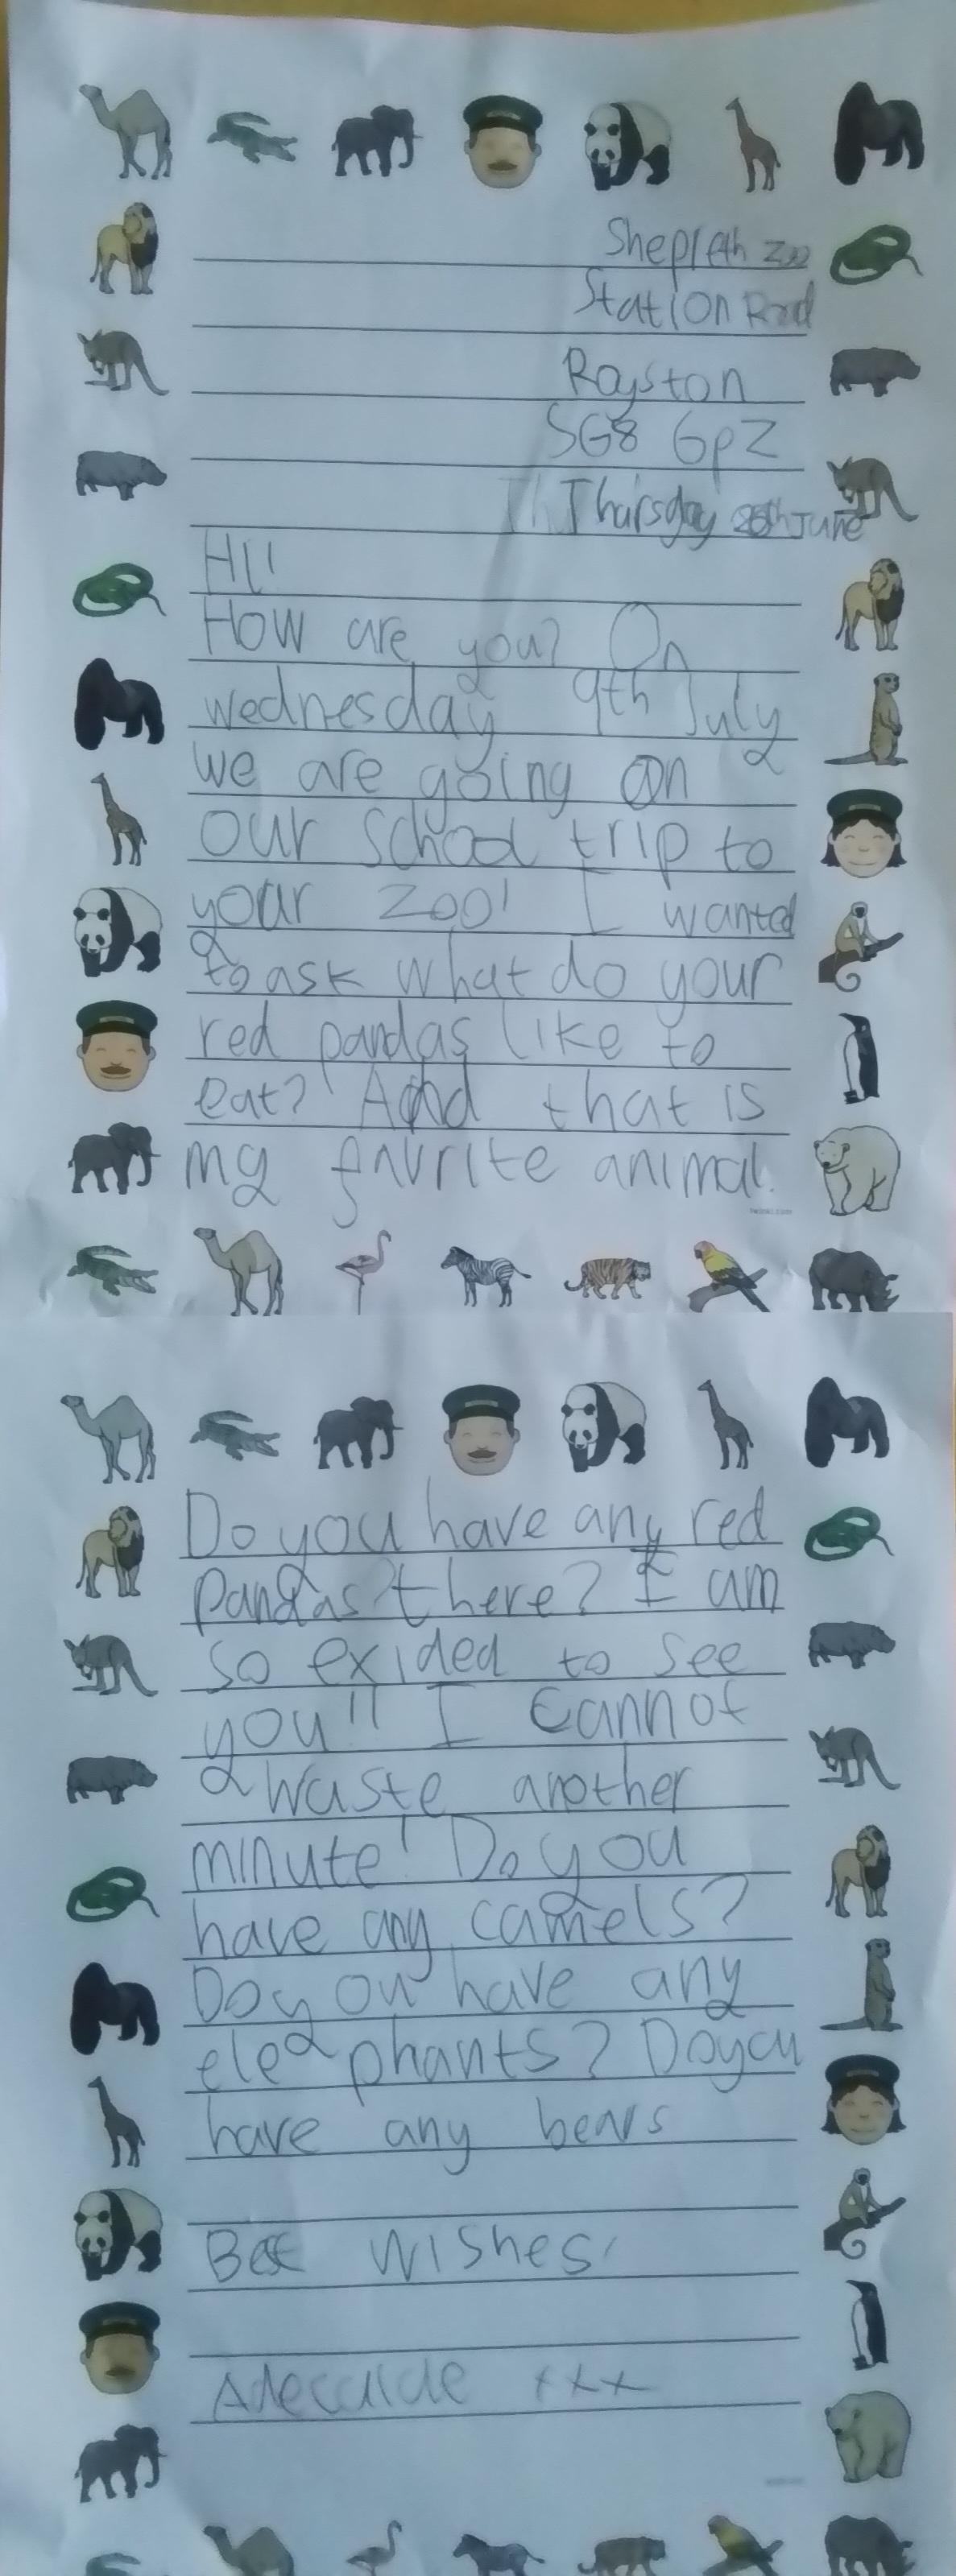 Shepreth Zoo
Station Road
Royston
SG8 6pZ
Thursday 26th June
Hi!
How are you? On
wednesday 9th July
we are going on
our school trip to
your zoo! I wanted
to ask what do your
red pandas like to
eat? And that is
my favrite animal.
Do you have any red
pandas there? I am
so exided to see
you!! I cannot
waste another
minute! Do you
have any camels?
Do you have any
elephants? Do you
have any bears
Best wishes,
xxx